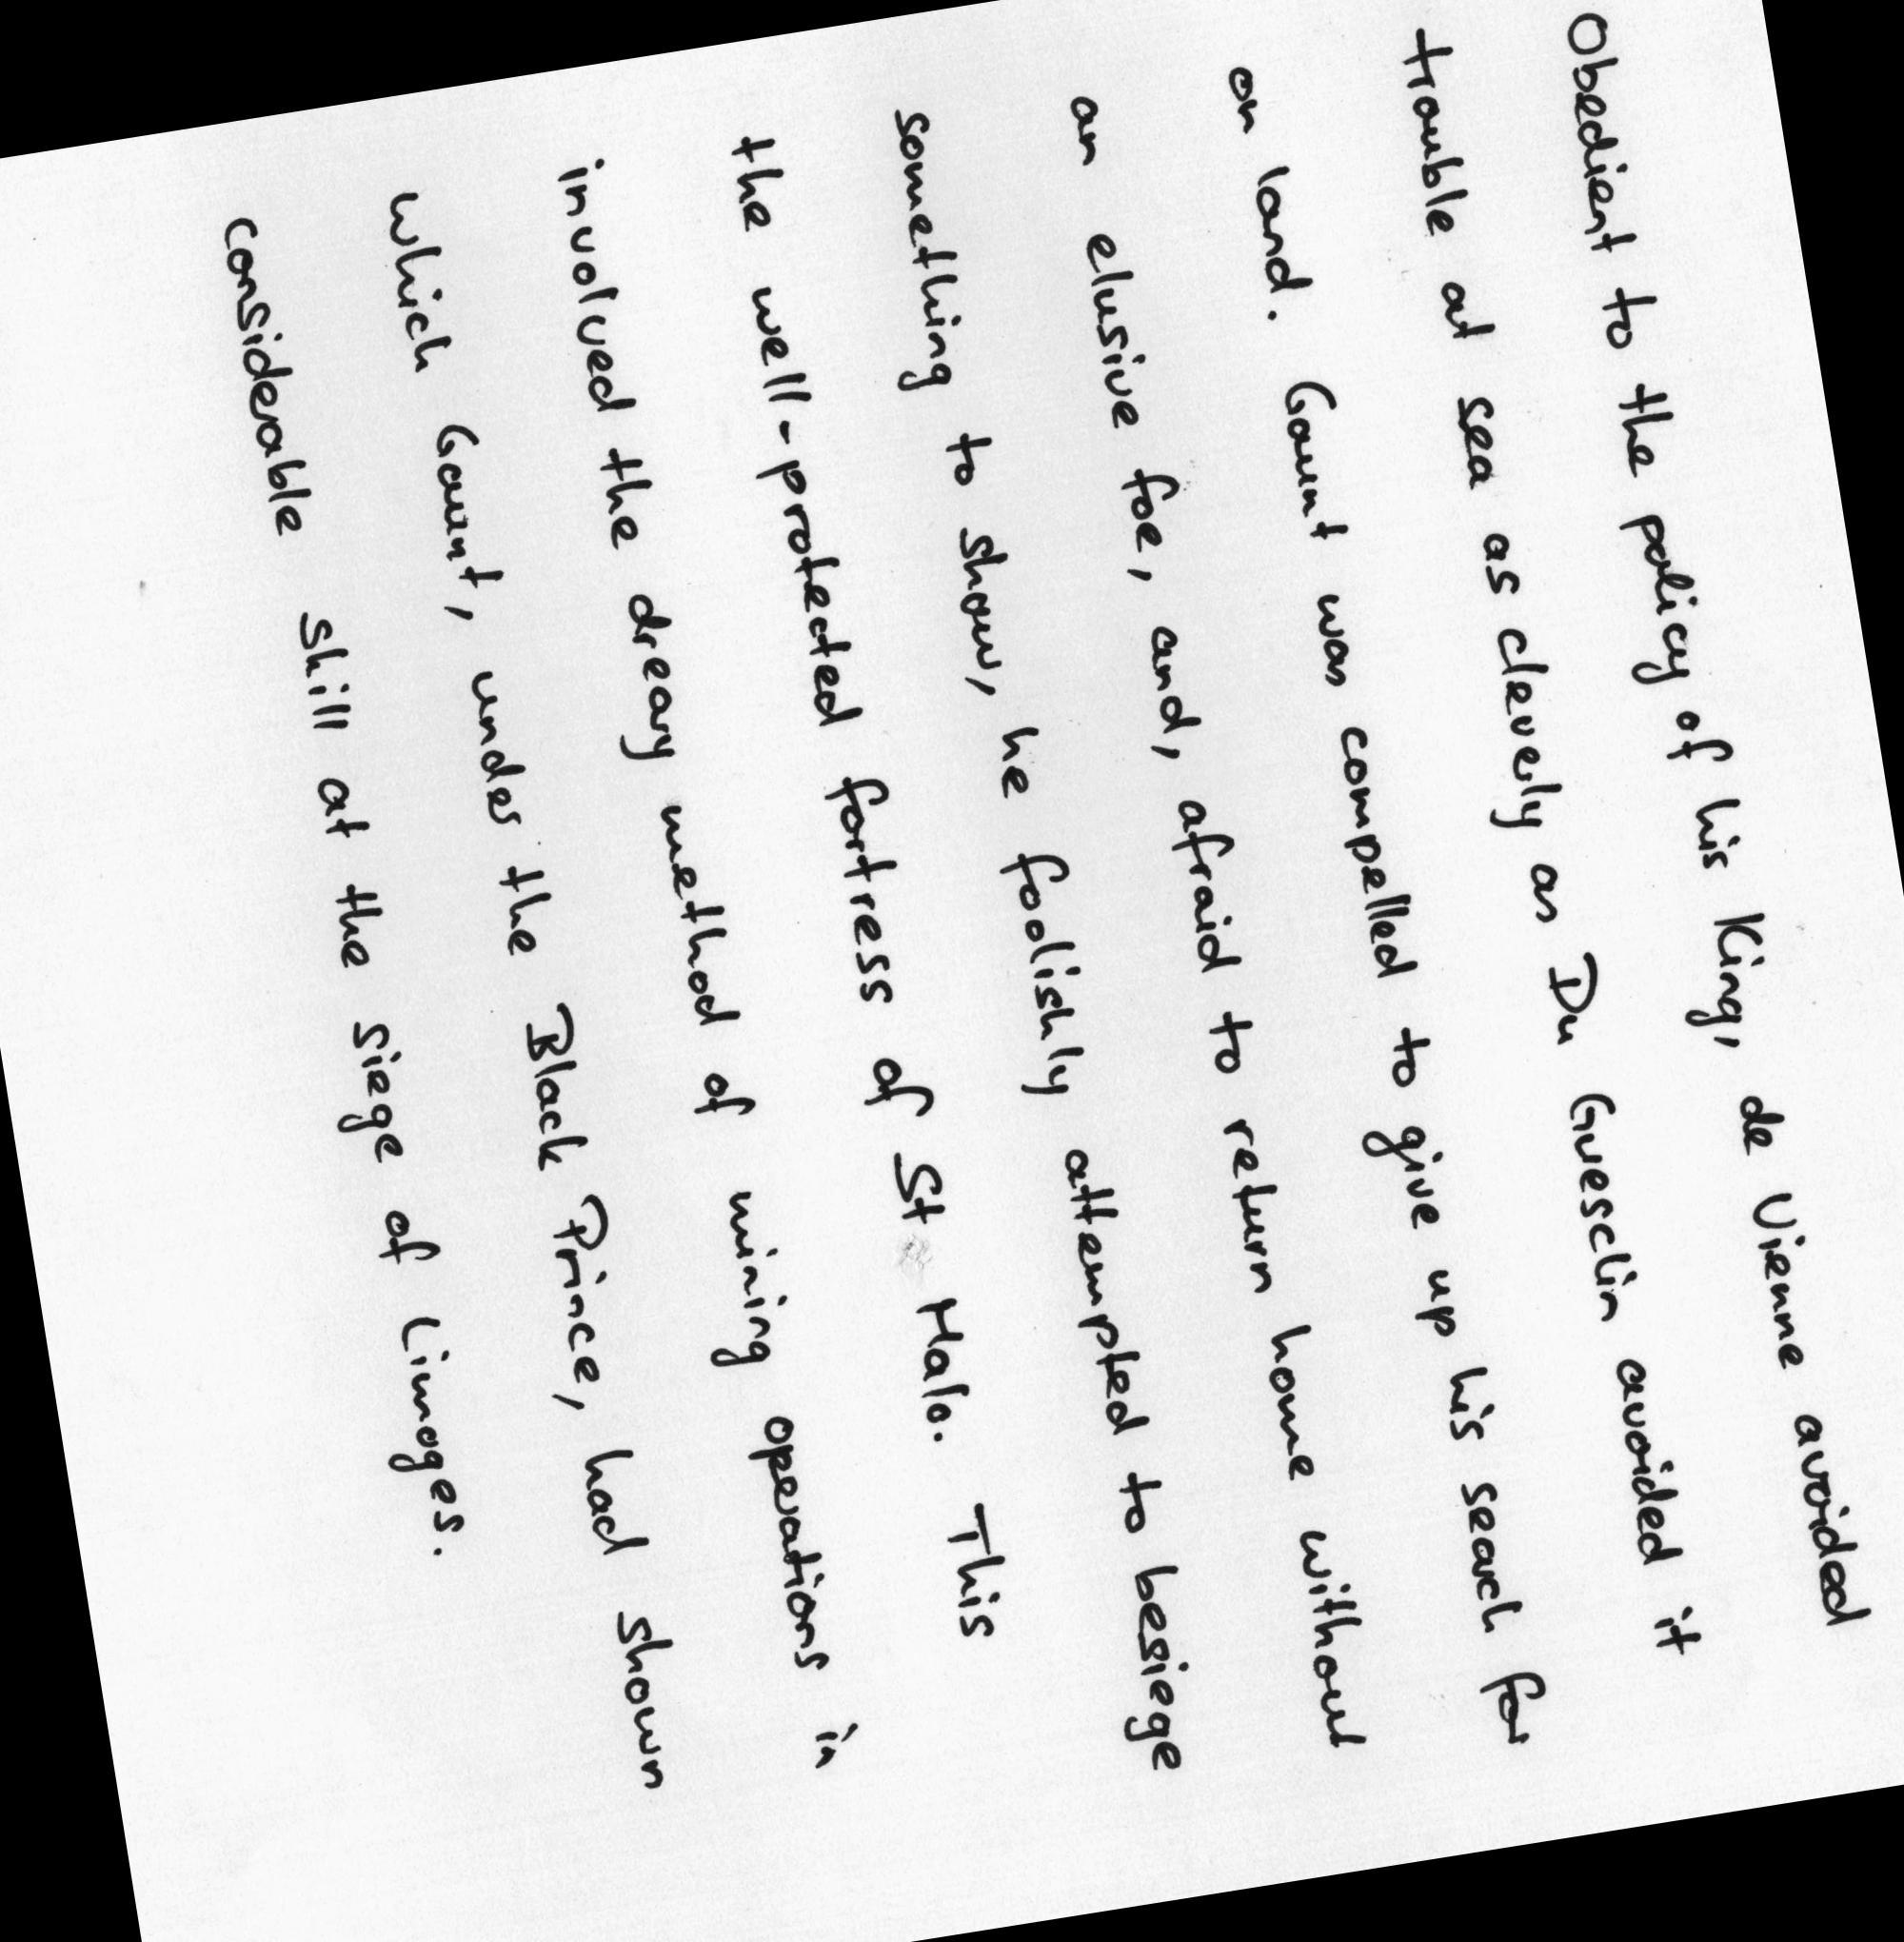 Obedient to the policy of his King, de Vienne avoided
trouble at sea as cleverly as Du Guesclin avoided it
on land. Gaunt was compelled to give up his search for
an elusive foe, and, afraid to return home without
something to show, he foolishly attempted to besiege
the well-protected fortress of St Malo. This
involved the dreary method of mining operations in
which Gaunt, under the Black Prince, had shown
considerable skill at the siege of Limoges.